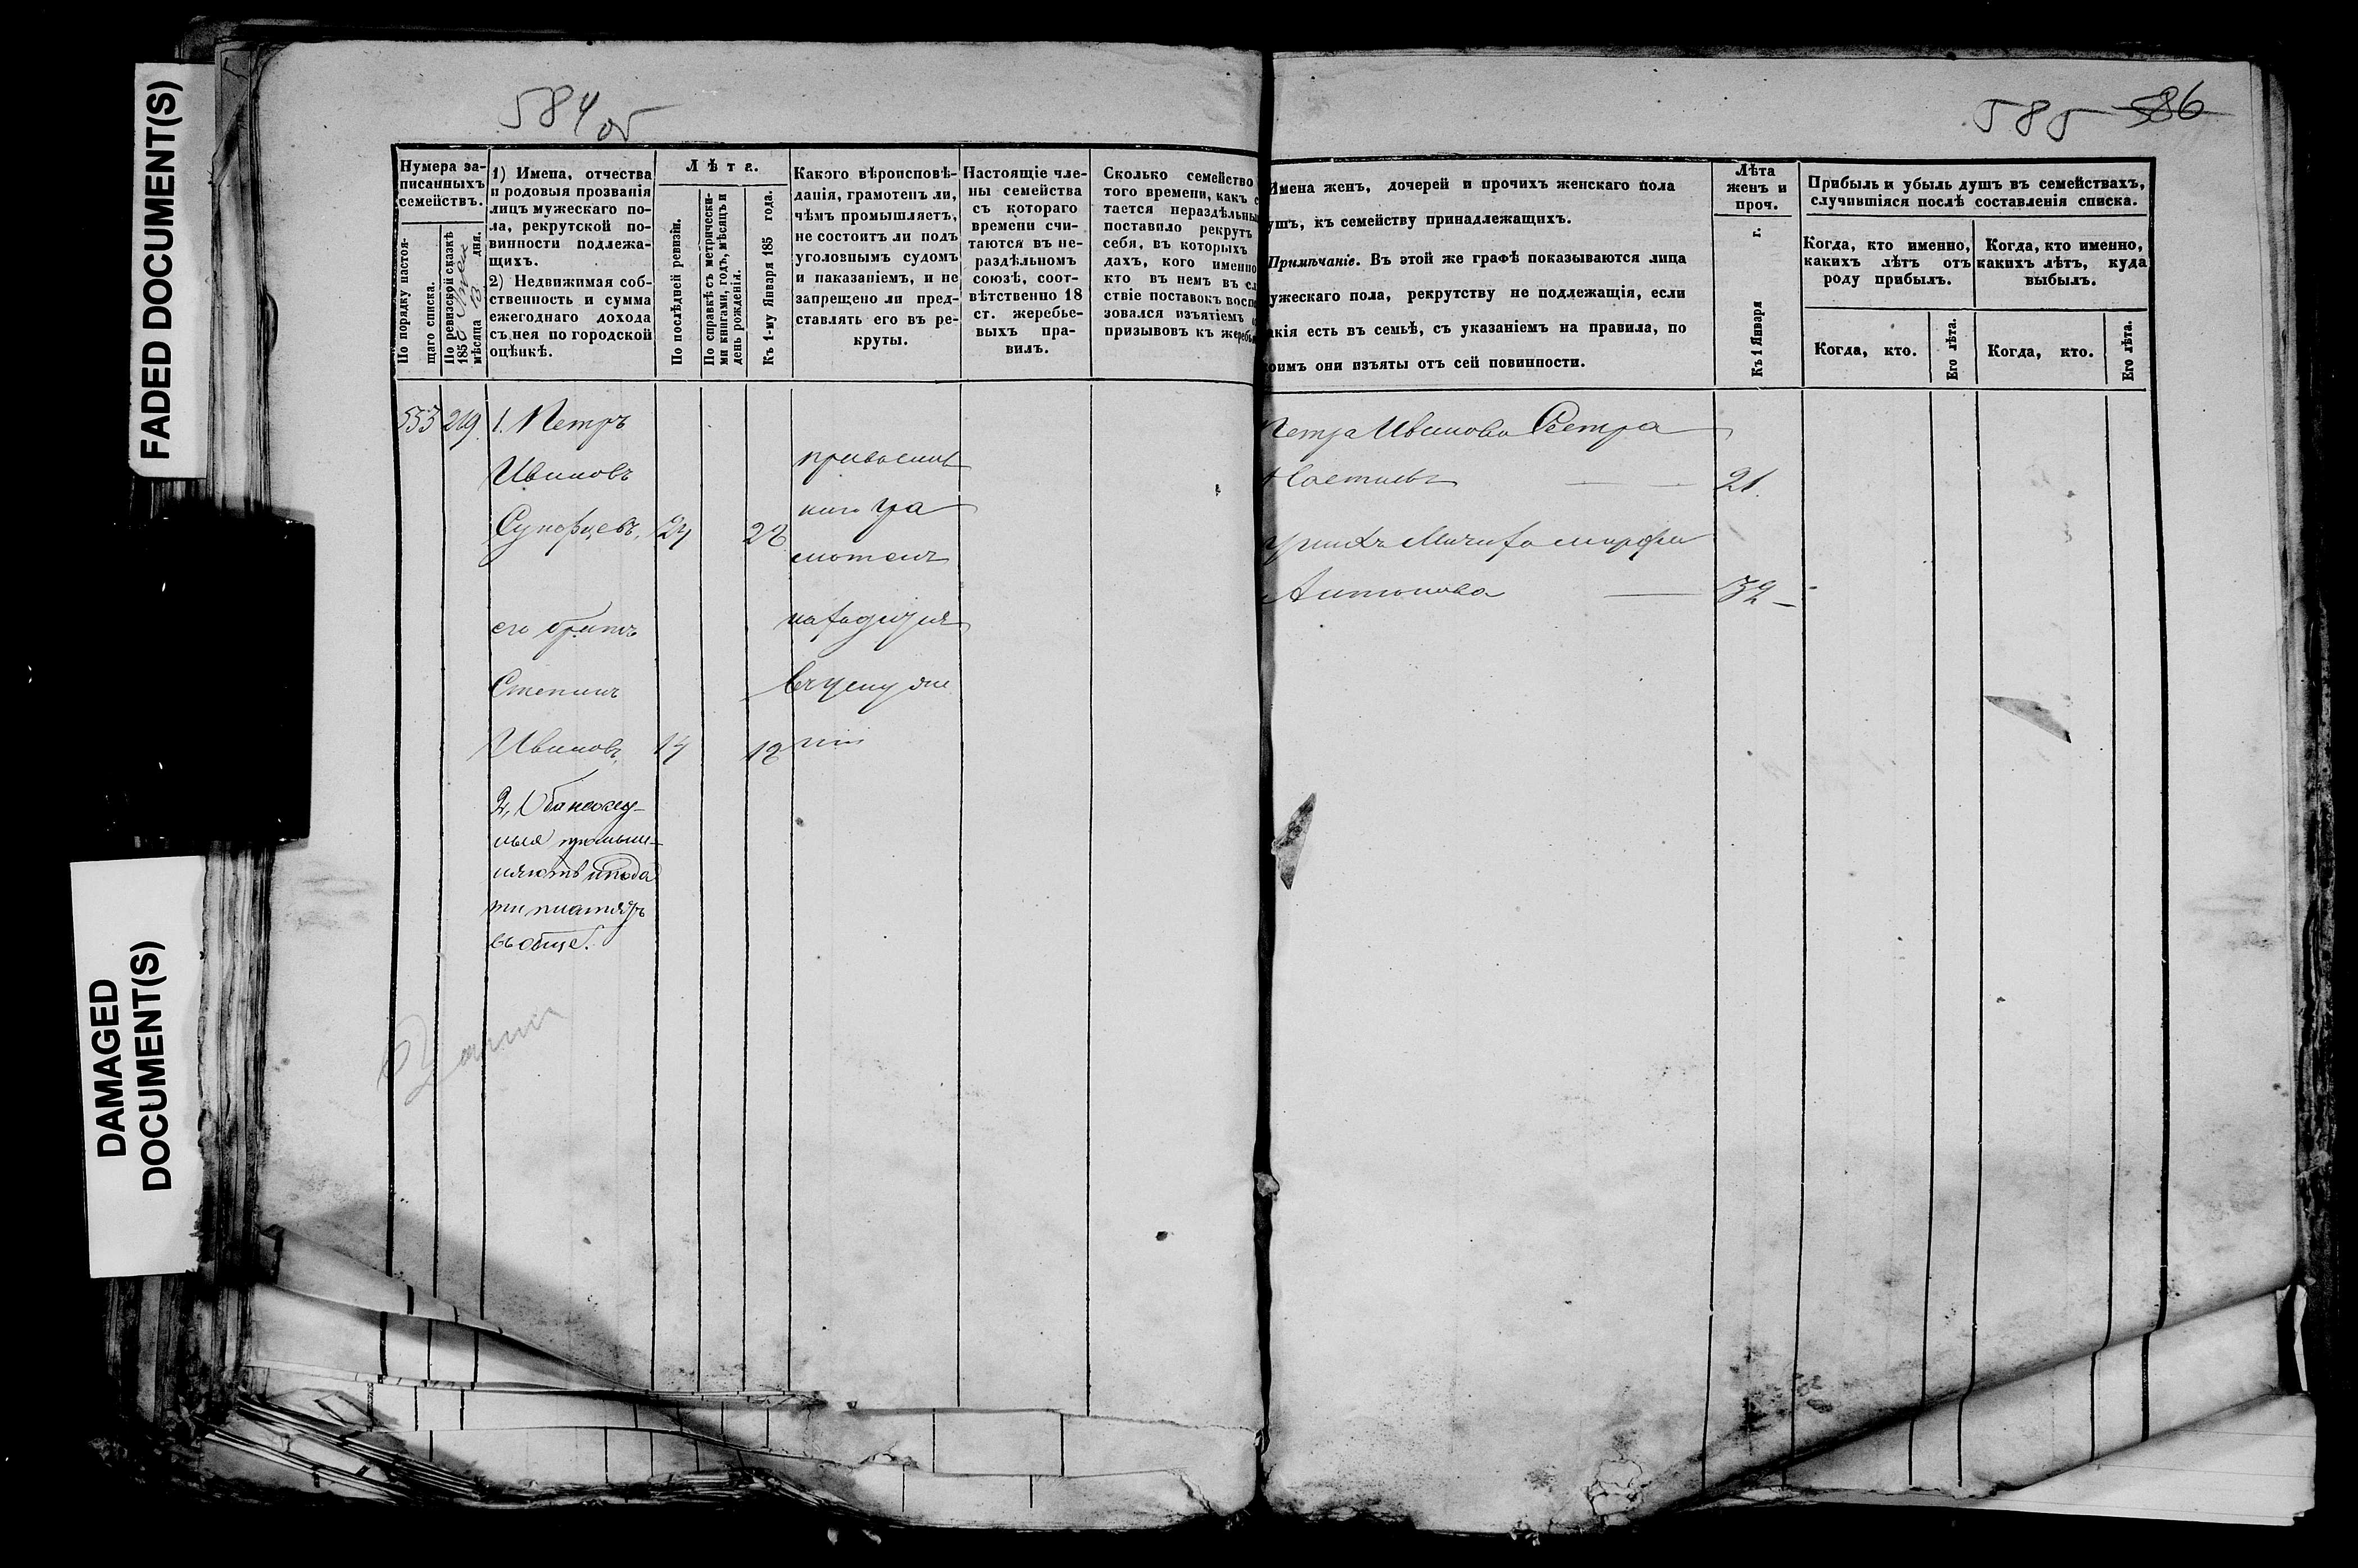 FADED DOCUMENT(S)
DAMAGED
DOCUMENT(S)
584 об
Нумера за-
писанныхъ
семействъ.
По порядку настоя-
щаго списка.
По ревизской сказкѣ
185
мѣсяца 13 дня.
1) Имена, отчества
и родовыя прозванія
лицъ мужескаго по-
ла, рекрутской по-
винности подлежа-
щихъ.
2) Недвижимая соб-
ственность и сумма
ежегоднаго дохода
съ нея по городской
оцѣнкѣ.
Лѣта.
По послѣдней ревизіи.
По справкѣ съ метрически-
ми книгами, годъ, мѣсяцъ и
день рожденія.
Къ 1-му Января 185 года.
Какого вѣроисповѣ-
данія, грамотенъ ли,
чѣмъ промышляетъ,
не состоитъ ли подъ
уголовнымъ судомъ
и наказаніемъ, и не
запрещено ли пред-
ставлять его въ ре-
круты.
Настоящіе чле-
ны семейства
съ котораго
времени счи-
таются въ не-
раздѣльномъ
союзѣ, соот-
вѣтственно 18
ст. жеребье-
выхъ пра-
вилъ.
Сколько семейство
того времени, какъ с
тается нераздѣльны
поставило рекрутъ
себя, въ которыхъ
дахъ, кого именно
кто въ немъ въ сл
ствіе поставокъ восп
зовался изъятіемъ
призывовъ къ жеребь
553 249 1. Петръ
Ивановъ
24 28
его братъ
Степанъ
Ивановъ 14 18
православ
наго гра
мотенъ
находился
въ услуже
ніи
2,
промыш-
ляютъ и пода
ти платятъ
въ обще.
585 586
Имена женъ, дочерей и прочихъ женскаго пола
ушъ, къ семейству принадлежащихъ.
Примѣчаніе. Въ этой же графѣ показываются лица
ужескаго пола, рекрутству не подлежащія, если
акія есть въ семьѣ, съ указаніемъ на правила, по
оимъ они изъяты отъ сей повинности.
Лѣта
женъ и
проч.
Къ 1 Января г.
Прибыль и убыль душъ въ семействахъ,
случившіяся послѣ составленія списка.
Когда, кто именно,
какихъ лѣтъ отъ
роду прибылъ.
Когда, кто именно,
какихъ лѣтъ, куда
выбылъ.
Когда, кто.
Его лѣта.
Когда, кто.
Его лѣта.
Петра Иванова Сестра
Настасья 21.
у нихъ Мачиха Марфа
Антонова 32